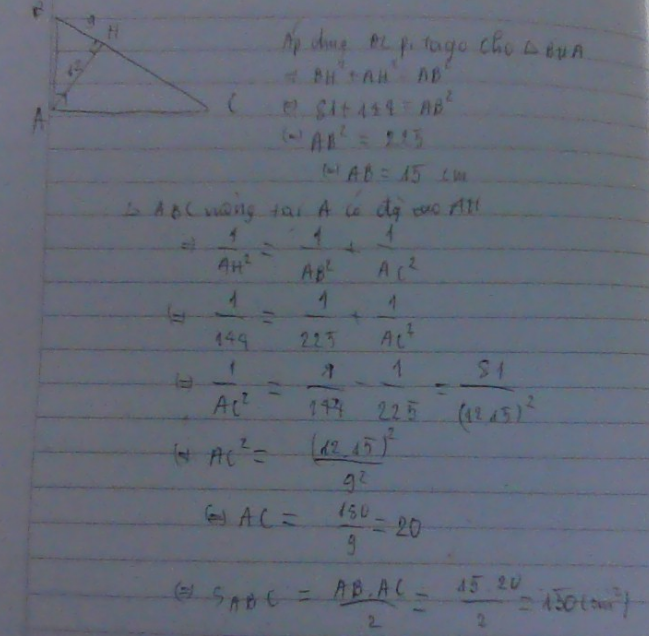 B 9 H
12
A C
Áp dụng ĐL pi tago cho △ BHA
⇒ BH² + AH² = AB²
⇔ 81 + 144 = AB²
⇔ AB² = 225
⇔ AB = 15 cm
△ ABC vuông tại A có độ cao AH
⇒ 1/AH² = 1/AB² + 1/AC²
⇔ 1/144 = 1/225 + 1/AC²
⇔ 1/AC² = 1/144 - 1/225 = 81/(12.15)²
⇔ AC² = (12.15)²/9²
⇔ AC = 180/9 = 20
⇔ S ABC = AB.AC/2 = 15.20/2 = 150 (cm²)